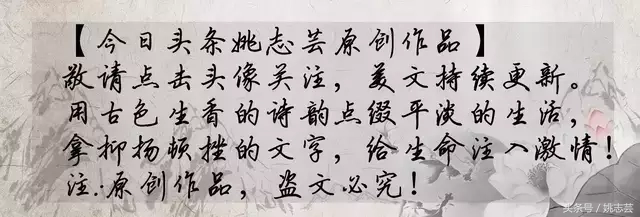 【今日头条姚志芸原创作品】
敬请点击头像关注，美文持续更新。
用古色生香的诗韵点缀平淡的生活，
拿抑扬顿挫的文字，给生命注入激情！
注:原创作品，盗文必究！
头条号/姚志芸